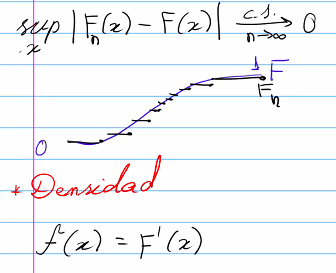 sup_x |F_n(x) - F(x)| \xrightarrow[n→∞]{c.s.} 0
1 F
F_n
0
* Densidad
f(x) = F'(x)